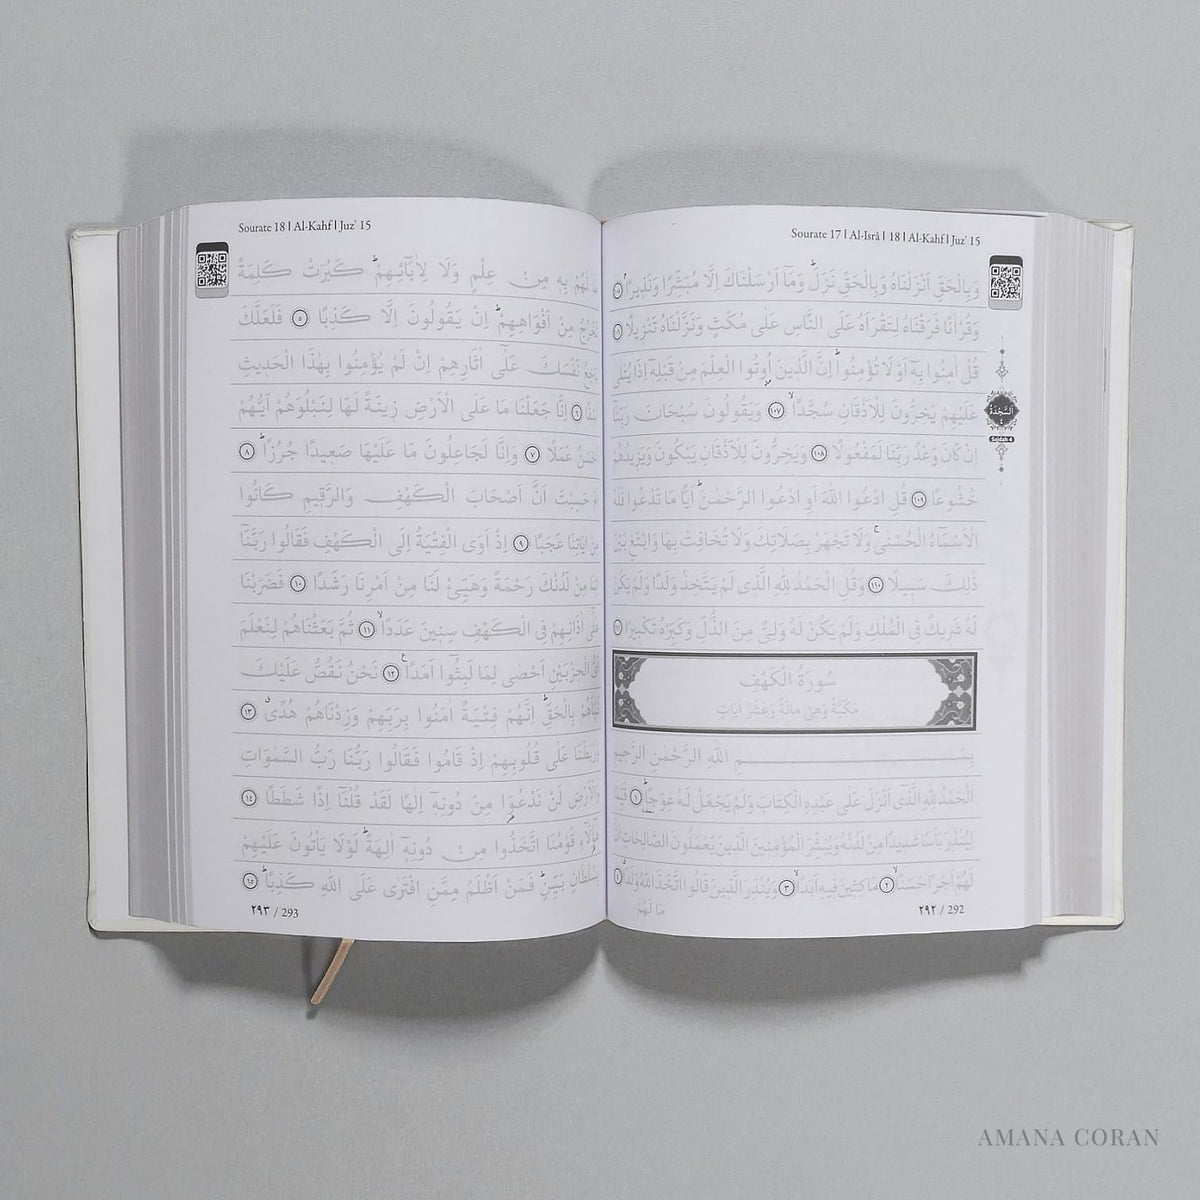 Sourate 17 | Al-Isrâ | 18 | Al-Kahf | Juz' 15
وَبِالْحَقِّ اَنْزَلْنَاهُ وَبِالْحَقِّ نَزَلَ وَمَا اَرْسَلْنَاكَ اِلَّا مُبَشِّرًا وَنَذِيرًا
وَقُرْاٰنًا فَرَقْنَاهُ لِتَقْرَاَهُ عَلَى النَّاسِ عَلٰى مُكْثٍ وَنَزَّلْنَاهُ تَنْزِيلًا
قُلْ اٰمِنُوا بِهٖٓ اَوْ لَا تُؤْمِنُوا اِنَّ الَّذِينَ اُوتُوا الْعِلْمَ مِنْ قَبْلِهٖٓ اِذَا يُتْلٰى
عَلَيْهِمْ يَخِرُّونَ لِلْاَذْقَانِ سُجَّدًا ١٠٧ وَيَقُولُونَ سُبْحَانَ رَبِّنَا
اِنْ كَانَ وَعْدُ رَبِّنَا لَمَفْعُولًا ١٠٨ وَيَخِرُّونَ لِلْاَذْقَانِ يَبْكُونَ وَيَزِيدُهُمْ
خُشُوعًا ١٠٩ قُلِ ادْعُوا اللّٰهَ اَوِ ادْعُوا الرَّحْمٰنَ اَيًّا مَا تَدْعُوا فَلَهُ
الْاَسْمَٓاءُ الْحُسْنٰى وَلَا تَجْهَرْ بِصَلَاتِكَ وَلَا تُخَافِتْ بِهَا وَابْتَغِ بَيْنَ
ذٰلِكَ سَبِيلًا ١١٠ وَقُلِ الْحَمْدُ لِلّٰهِ الَّذِي لَمْ يَتَّخِذْ وَلَدًا وَلَمْ يَكُنْ
لَهُ شَرِيكٌ فِي الْمُلْكِ وَلَمْ يَكُنْ لَهُ وَلِيٌّ مِنَ الذُّلِّ وَكَبِّرْهُ تَكْبِيرًا
اَلسَّجْدَةُ
Sajdah 4
سُورَةُ الْكَهْفِ
مَكِّيَّةٌ وَهِيَ مِائَةٌ وَعَشْرُ اٰيَاتٍ
بِسْمِ اللّٰهِ الرَّحْمٰنِ الرَّحِيمِ
اَلْحَمْدُ لِلّٰهِ الَّذِٓي اَنْزَلَ عَلٰى عَبْدِهِ الْكِتَابَ وَلَمْ يَجْعَلْ لَهُ عِوَجًا ١ قَيِّمًا
لِيُنْذِرَ بَأْسًا شَدِيدًا مِنْ لَدُنْهُ وَيُبَشِّرَ الْمُؤْمِنِينَ الَّذِينَ يَعْمَلُونَ الصَّالِحَاتِ اَنَّ
لَهُمْ اَجْرًا حَسَنًا ٢ مَاكِثِينَ فِيهِ اَبَدًا ٣ وَيُنْذِرَ الَّذِينَ قَالُوا اتَّخَذَ اللّٰهُ وَلَدًا ٤
مَا لَهُمْ
٢٩٢ / 292
Sourate 18 | Al-Kahf | Juz' 15
لَهُمْ بِهٖ مِنْ عِلْمٍ وَلَا لِاٰبَٓائِهِمْ كَبُرَتْ كَلِمَةً
تَخْرُجُ مِنْ اَفْوَاهِهِمْ اِنْ يَقُولُونَ اِلَّا كَذِبًا ٥ فَلَعَلَّكَ
بَاخِعٌ نَفْسَكَ عَلٰٓى اٰثَارِهِمْ اِنْ لَمْ يُؤْمِنُوا بِهٰذَا الْحَدِيثِ
اَسَفًا ٦ اِنَّا جَعَلْنَا مَا عَلَى الْاَرْضِ زِينَةً لَهَا لِنَبْلُوَهُمْ اَيُّهُمْ
اَحْسَنُ عَمَلًا ٧ وَاِنَّا لَجَاعِلُونَ مَا عَلَيْهَا صَعِيدًا جُرُزًا ٨
اَمْ حَسِبْتَ اَنَّ اَصْحَابَ الْكَهْفِ وَالرَّقِيمِ كَانُوا
مِنْ اٰيَاتِنَا عَجَبًا ٩ اِذْ اَوَى الْفِتْيَةُ اِلَى الْكَهْفِ فَقَالُوا رَبَّنَٓا
اٰتِنَا مِنْ لَدُنْكَ رَحْمَةً وَهَيِّئْ لَنَا مِنْ اَمْرِنَا رَشَدًا ١٠ فَضَرَبْنَا
عَلٰٓى اٰذَانِهِمْ فِي الْكَهْفِ سِنِينَ عَدَدًا ١١ ثُمَّ بَعَثْنَاهُمْ لِنَعْلَمَ
اَيُّ الْحِزْبَيْنِ اَحْصٰى لِمَا لَبِثُٓوا اَمَدًا ١٢ نَحْنُ نَقُصُّ عَلَيْكَ
نَبَاَهُمْ بِالْحَقِّ اِنَّهُمْ فِتْيَةٌ اٰمَنُوا بِرَبِّهِمْ وَزِدْنَاهُمْ هُدًى ١٣
وَرَبَطْنَا عَلٰى قُلُوبِهِمْ اِذْ قَامُوا فَقَالُوا رَبُّنَا رَبُّ السَّمٰوَاتِ
وَالْاَرْضِ لَنْ نَدْعُوَا مِنْ دُونِهٖٓ اِلٰهًا لَقَدْ قُلْنَٓا اِذًا شَطَطًا ١٤
هٰٓؤُلَٓاءِ قَوْمُنَا اتَّخَذُوا مِنْ دُونِهٖٓ اٰلِهَةً لَوْلَا يَأْتُونَ عَلَيْهِمْ
بِسُلْطَانٍ بَيِّنٍ فَمَنْ اَظْلَمُ مِمَّنِ افْتَرٰى عَلَى اللّٰهِ كَذِبًا ١٥
٢٩٣ / 293
AMANA CORAN